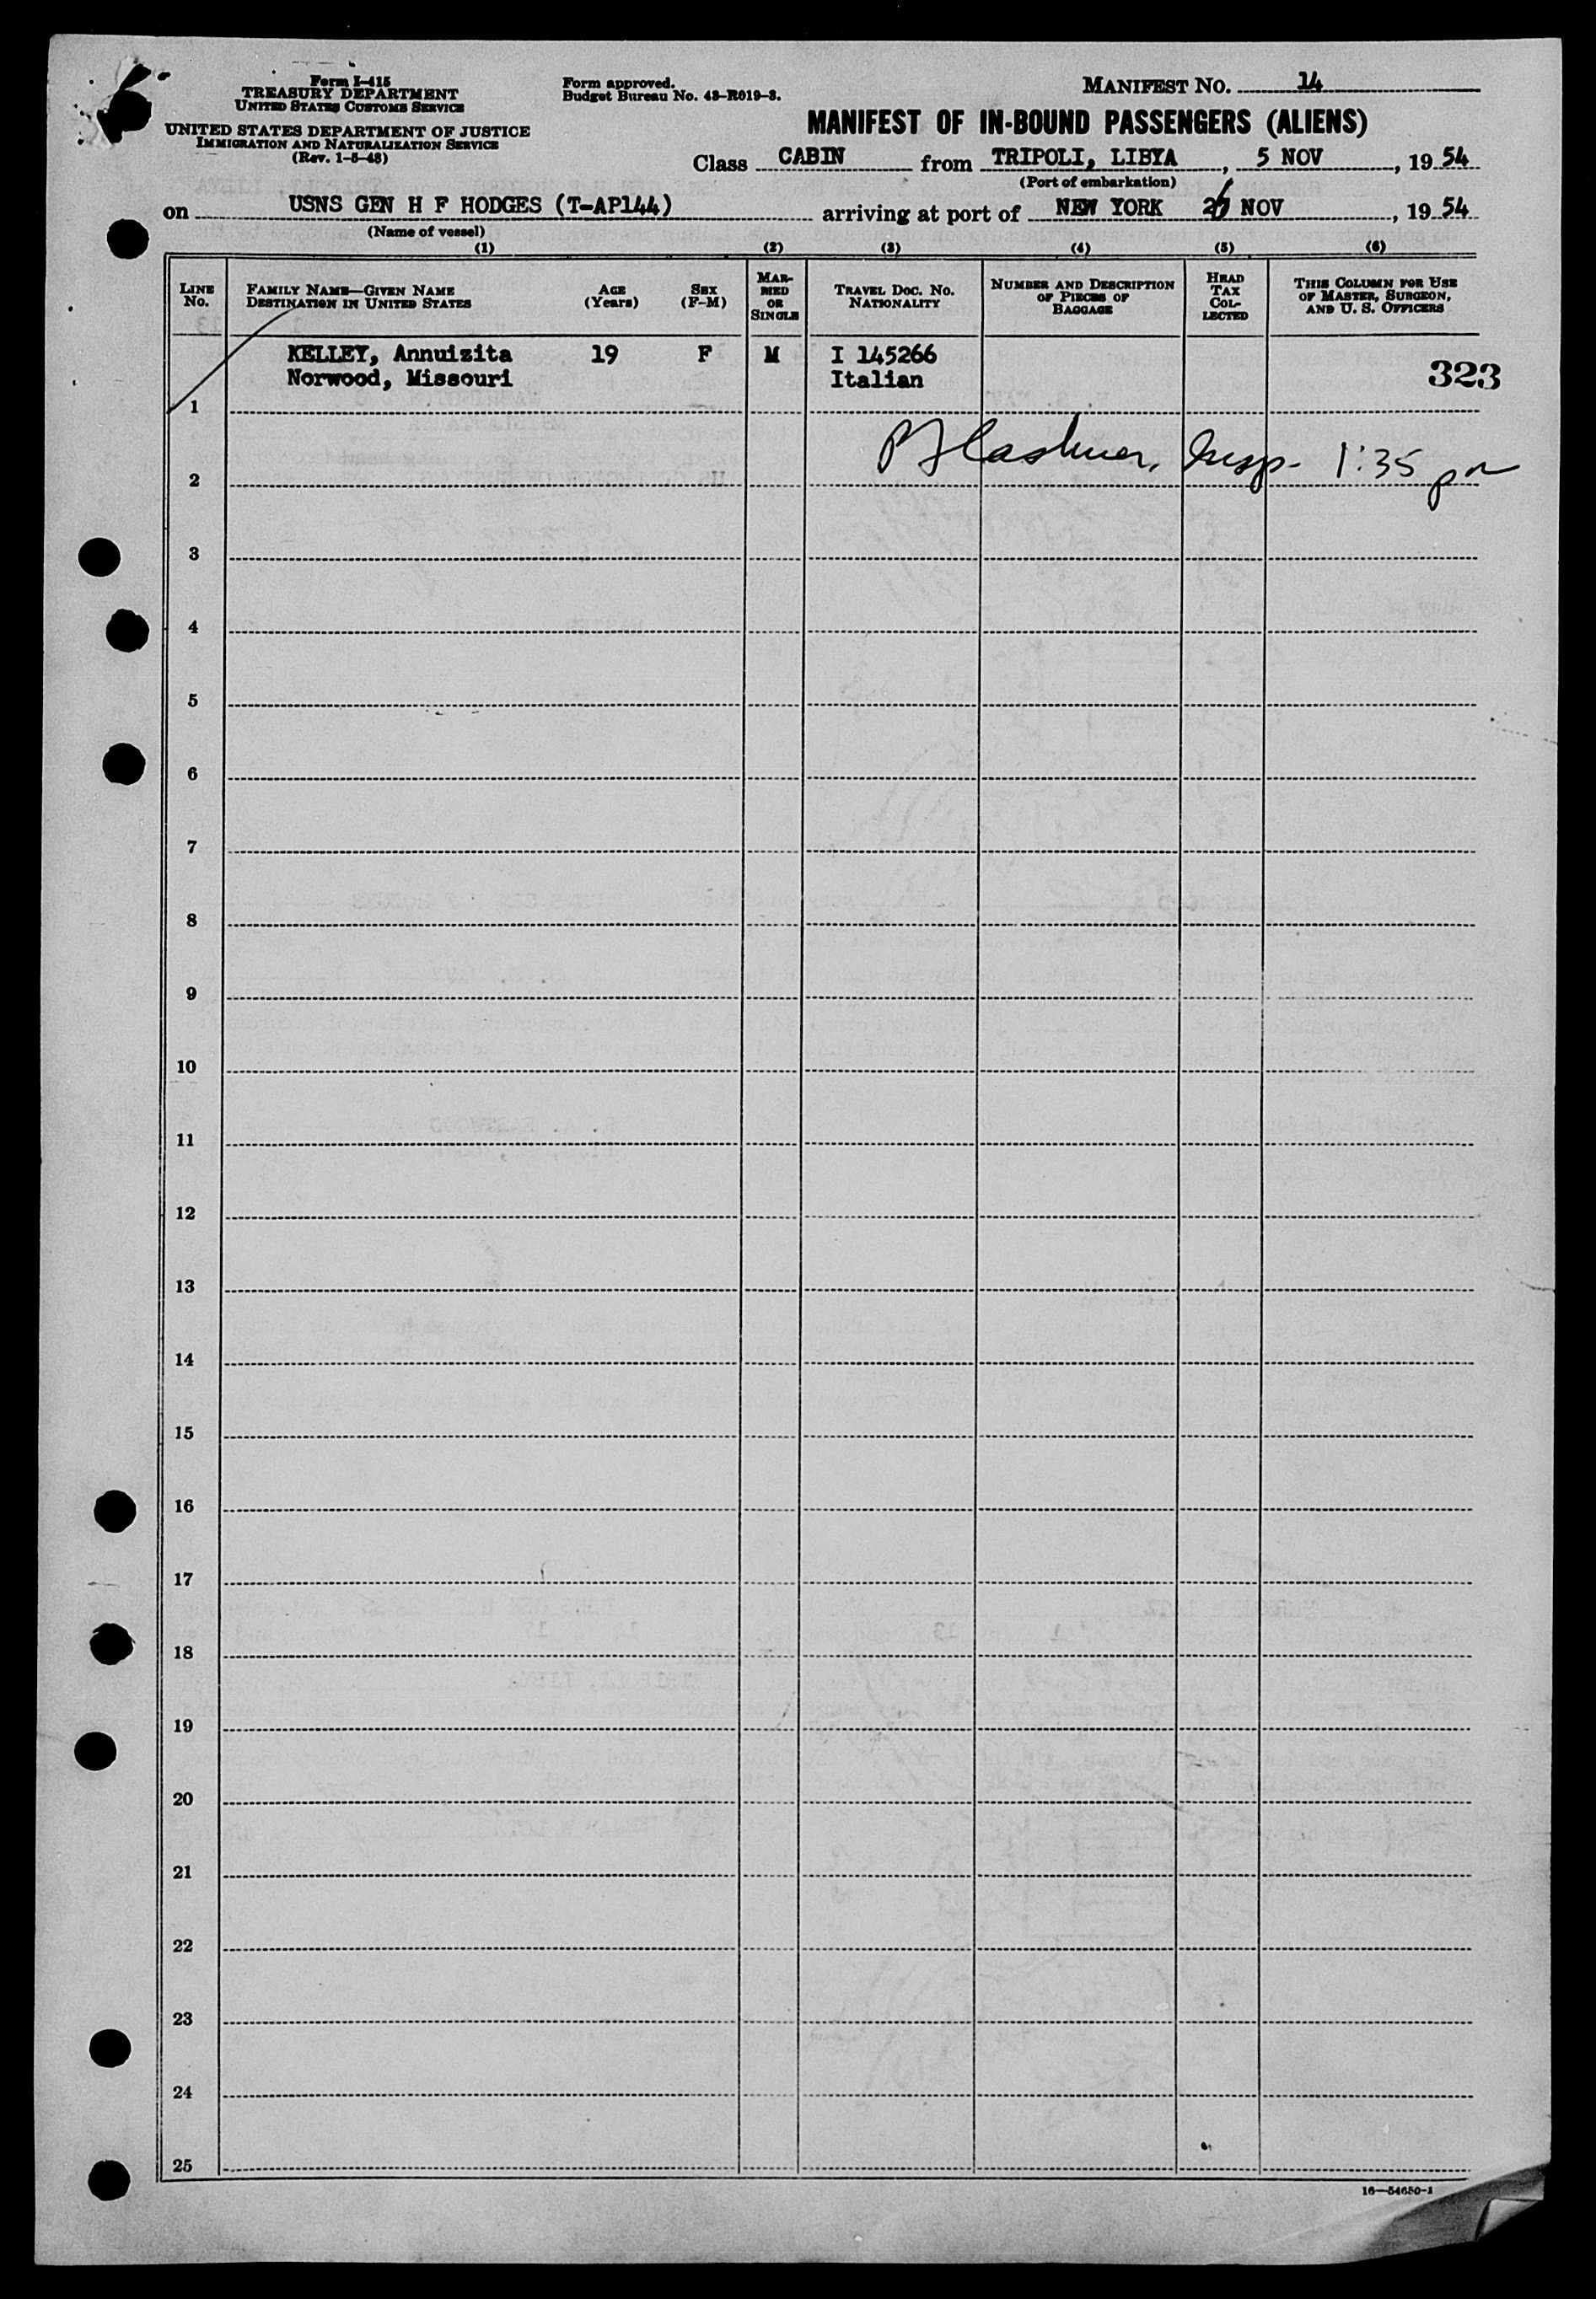 Form I-415
TREASURY DEPARTMENT
UNITED STATES CUSTOMS SERVICE
UNITED STATES DEPARTMENT OF JUSTICE
IMMIGRATION AND NATURALIZATION SERVICE
(Rev. 1-5-48)
Form approved.
Budget Bureau No. 43-R019-3.
MANIFEST NO. 14
MANIFEST OF IN-BOUND PASSENGERS (ALIENS)
Class CABIN from TRIPOLI, LIBYA, 5 NOV, 19 54
(Port of embarkation)
on USNS GEN H F HODGES (T-AP144) arriving at port of NEW YORK NOV, 19 54
(Name of vessel)
(1) (2) (3) (4) (5) (6)
LINE No. FAMILY NAME—GIVEN NAME DESTINATION IN UNITED STATES AGE (Years) SEX (F-M) MARRIED OR SINGLE TRAVEL DOC. NO. NATIONALITY NUMBER AND DESCRIPTION OF PIECES OF BAGGAGE HEAD TAX COLLECTED THIS COLUMN FOR USE OF MASTER, SURGEON, AND U. S. OFFICERS
KELLEY, Annuizita 19 F M I 145266
Norwood, Missouri Italian 323
1
Insp. 1:35 pm
2
3
4
5
6
7
8
9
10
11
12
13
14
15
16
17
18
19
20
21
22
23
24
25
16—54650-1